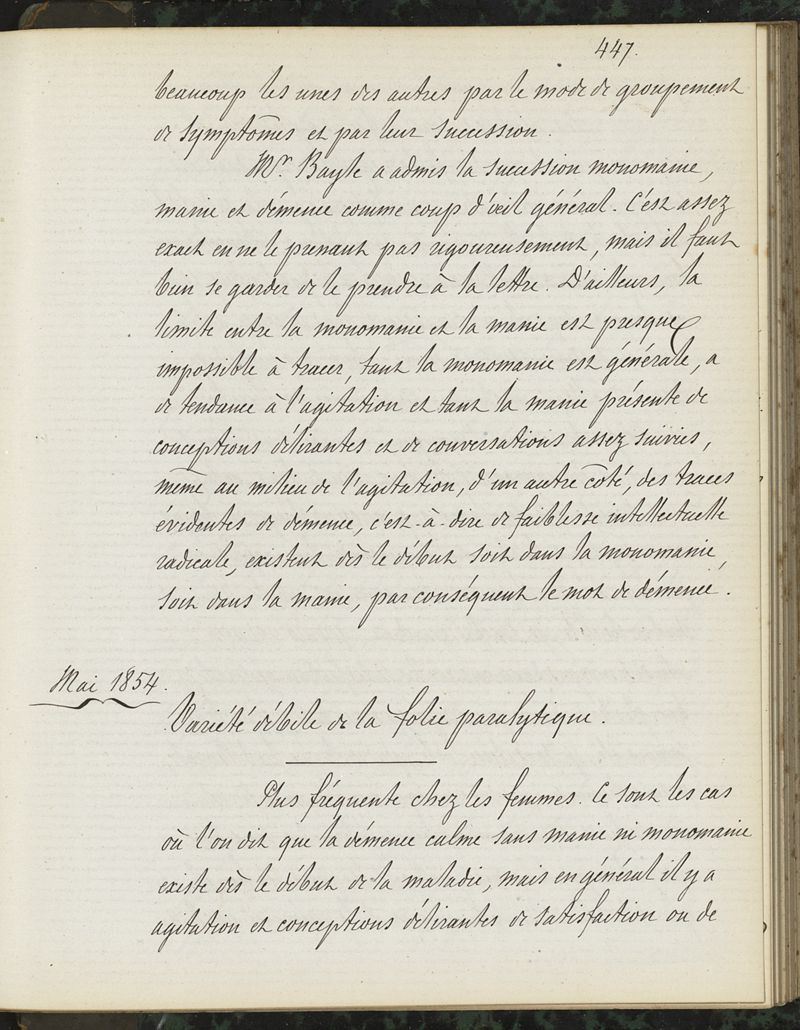 447.
beaucoup les unes des autres par le mode de groupement
de symptômes et par leur succession.
Mr. Bayle a admis la succession monomanie,
manie et démence comme coup d'œil général. C'est assez
exact en ne le prenant pas rigoureusement, mais il faut
bien se garder de le prendre à la lettre. D'ailleurs, la
limite entre la monomanie et la manie est presque
impossible à tracer, tant la monomanie est générale, a
de tendance à l'agitation et tant la manie présente de
conceptions délirantes et de conversations assez suivies,
même au milieu de l'agitation, d'un autre côté, des traces
évidentes de démence, c'est-à-dire de faiblesse intellectuelle
radicale, existent dès le début soit dans la monomanie,
soit dans la manie, par conséquent le mot de démence.
Mai 1854.
Variété débile de la folie paralytique.
Plus fréquente chez les femmes. Ce sont les cas
où l'on dit que la démence calme sans manie ni monomanie
existe dès le début de la maladie, mais en général il y a
agitation et conceptions délirantes de satisfaction ou de